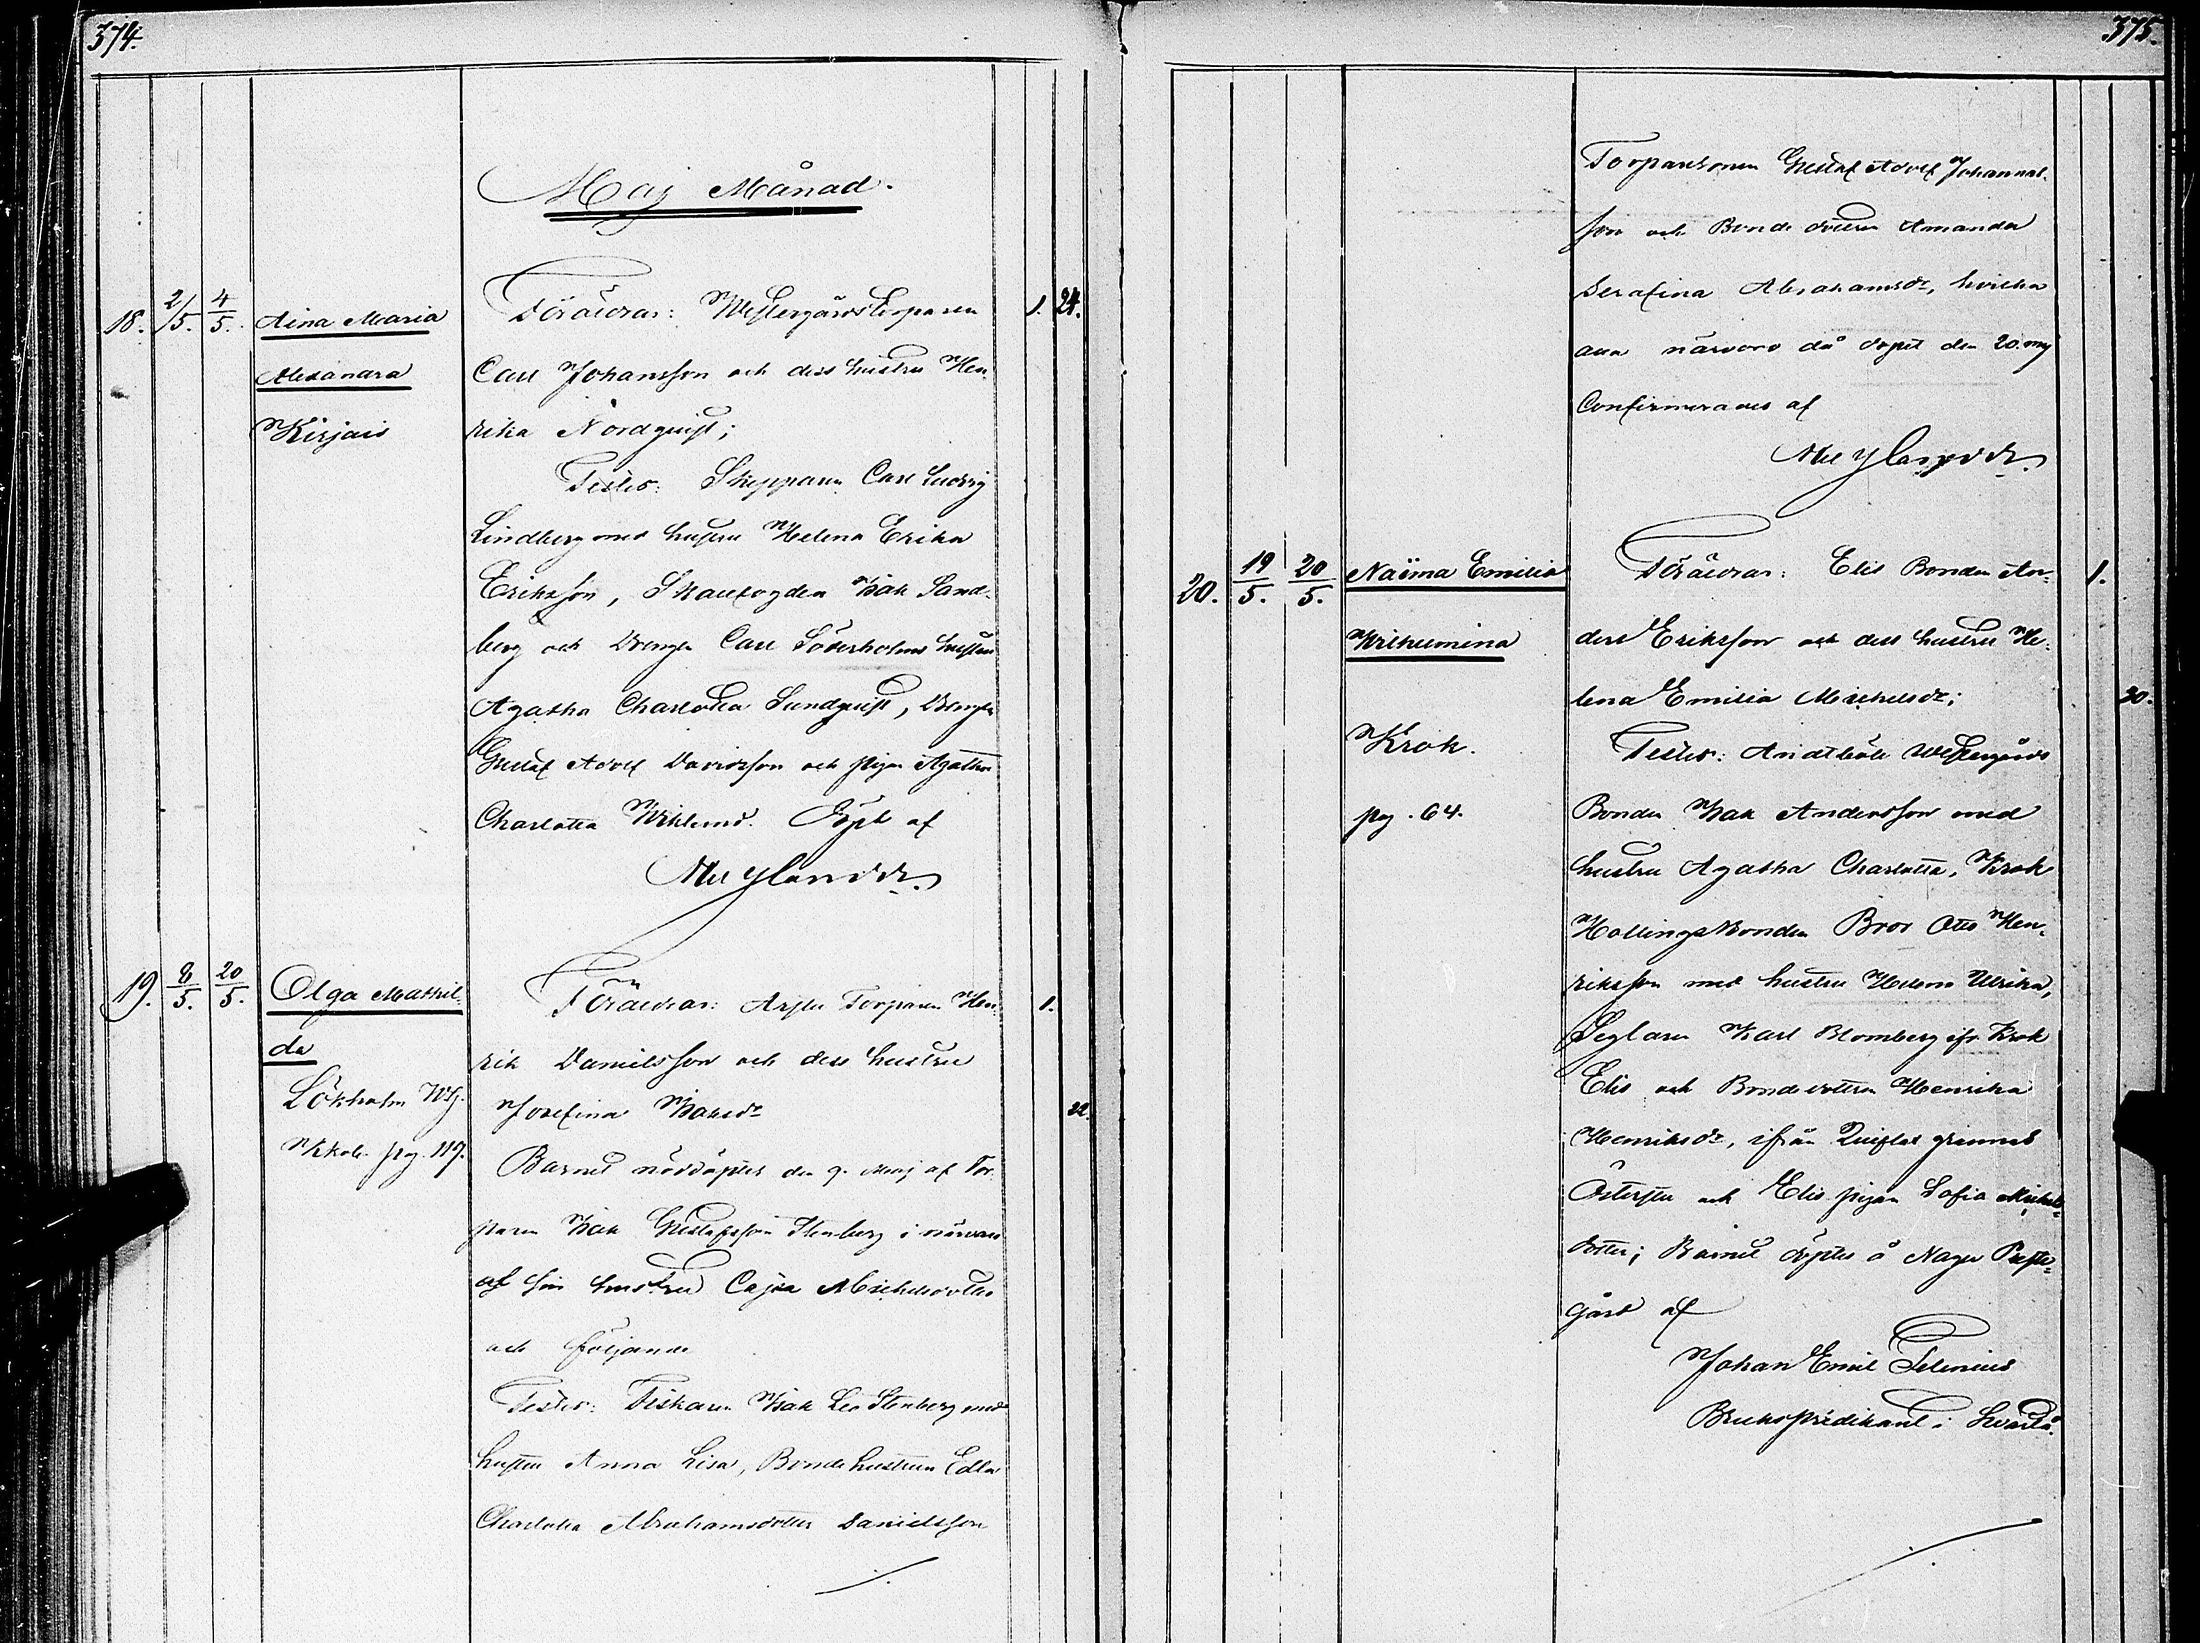 374.
Maj Månad.
18. 2/5. 4/5. Aina Maria
Alexandra
Kirjais
Föräldrar: Westergårds Torparen 1. 24.
Carl Johansson och dess hustru Hen-
rika Nordquist;
Testes: Skepparen Carl Ludvig
Lindberg med hustru Helena Erika
Eriksson, Skallfogden Isak Sand-
berg och Drengen Carl Söderholms hustru
Agatha Charlotta Sundquist, Drengen
Gustaf Adolf Davidsson och pigan Agatha
Charlotta Wiklund. Döpt af
Mylander
19. 8/5. 20/5. Olga Mathil-
da
Lökholm Wg.
pag. 119.
Föräldrar: Torparen Hen- 1.
rik Danielsson och dess hustru
Josefina Isaksdr 22.
Barnet nöddöptes den 9. Maj af Tor-
paren Isak Gustafsson Stenberg i närvaro
af sin hustru Cajsa Michelsdotter
och följande
Testes: Fiskaren Isak Leo Stenberg med
hustru Anna Lisa, Bondehustrun Edla
Charlotta Abrahamsdotter Danielsson
./.
375.
Torparsonen Gustaf Adolf Johannes-
son och Bondedottren Amanda
Serafina Abrahamsdr, hvilka
även närvoro då dopet den 20. maj
Confirmerades af
Mylander
20. 19/5. 20/5. Naïma Emilia
Wilhelmina
Krok.
pag. 64.
Föräldrar: Elis Bonden An- 1.
ders Eriksson och dess hustru He-
lena Emilia Michelsdr; 30.
Testes: Andtböle Westergårds
Bonden Isak Andersson med
hustru Agatha Charlotta, Krok
Hollings Bonden Bror Otto Hen-
riksson med hustru Helena Ulrika,
Seglaren Karl Blomberg ifr. Krok
Elis och Bondedottren Henrika
Henriksdr, ifrån
och Elis pigan Sofia Michels-
dotter; Barnet döptes å Nagu Preste-
gård af
Johan Emil Telenius
Brukspredikant i Svartå.
./.